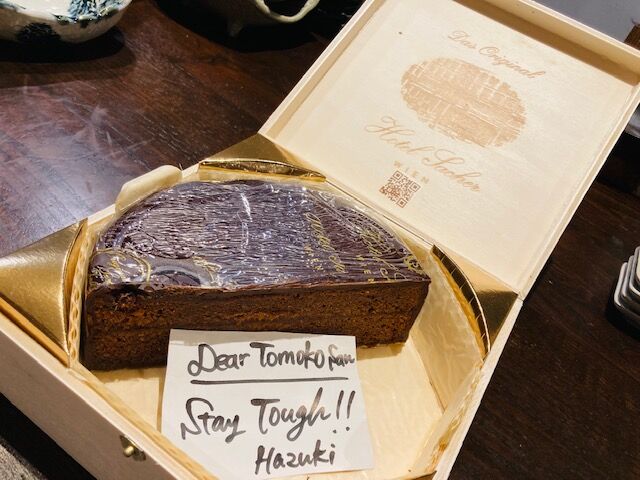 Das Original
Hotel Sacher
WIEN
Dear Tomoko San
Stay Tough!!
Hazuki